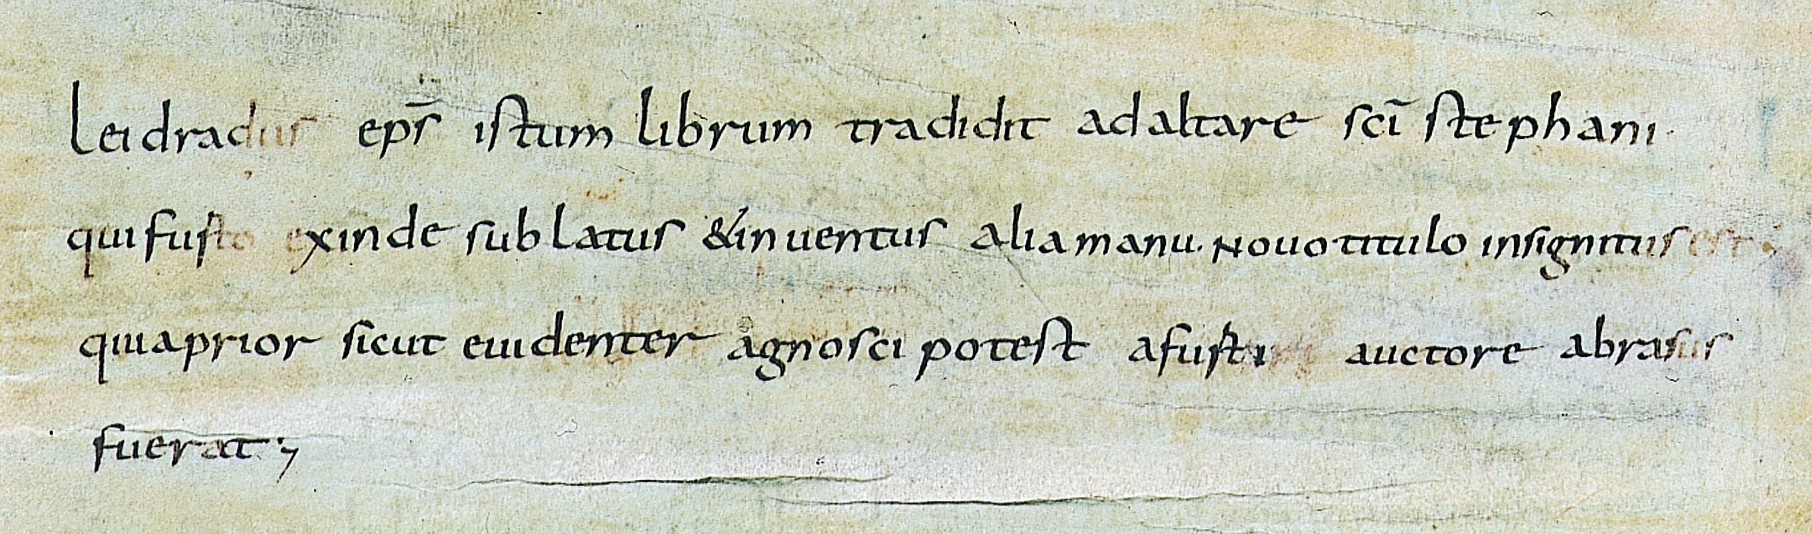 Leidradus ep̅s istum librum tradidit ad altare sc̅i stephani.
qui fusto exinde sublatus & inuentus alia manu. Nouo titulo insignitus est;
quia prior sicut euidenter agnosci potest a auctore abrasus
fuerat;